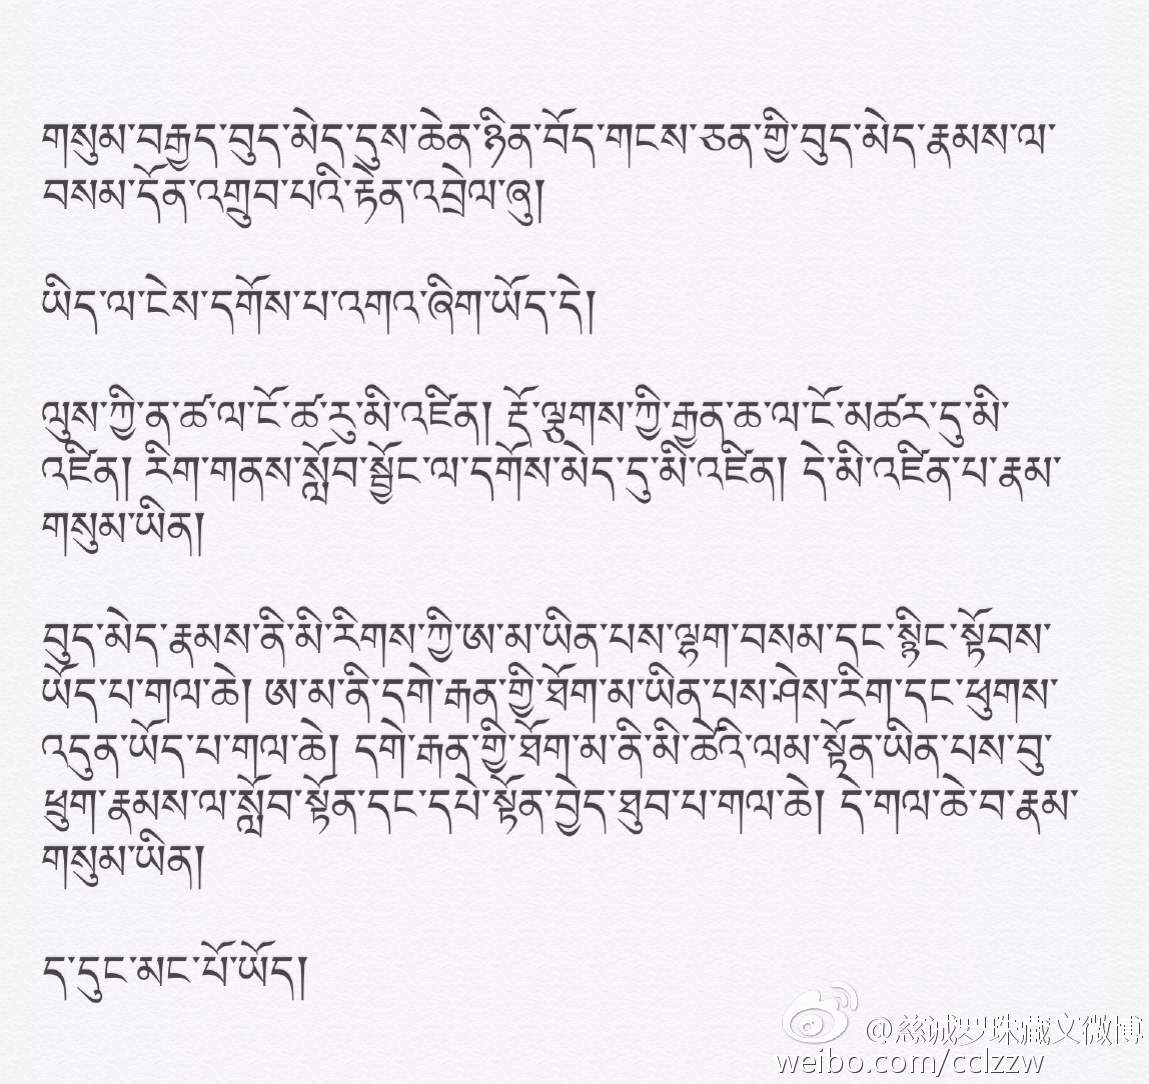 གསུམ་བརྒྱད་བུད་མེད་དུས་ཆེན་ཉིན་བོད་གངས་ཅན་གྱི་བུད་མེད་རྣམས་ལ་
བསམ་དོན་འགྲུབ་པའི་རྟེན་འབྲེལ་ཞུ།
ཡིད་ལ་ངེས་དགོས་པ་འགའ་ཞིག་ཡོད་དེ།
ལུས་ཀྱི་ན་ཚ་ལ་ངོ་ཚ་རུ་མི་འཛིན། རྡོ་ལྕགས་ཀྱི་རྒྱན་ཆ་ལ་ངོ་མཚར་དུ་མི་
འཛིན། རིག་གནས་སློབ་སྦྱོང་ལ་དགོས་མེད་དུ་མི་འཛིན། དེ་མི་འཛིན་པ་རྣམ་
གསུམ་ཡིན།
བུད་མེད་རྣམས་ནི་མི་རིགས་ཀྱི་ཨ་མ་ཡིན་པས་ལྷག་བསམ་དང་སྙིང་སྟོབས་
ཡོད་པ་གལ་ཆེ། ཨ་མ་ནི་དགེ་རྒན་གྱི་ཐོག་མ་ཡིན་པས་ཤེས་རིག་དང་ཕུགས་
འདུན་ཡོད་པ་གལ་ཆེ། དགེ་རྒན་གྱི་ཐོག་མ་ནི་མི་ཚེའི་ལམ་སྟོན་ཡིན་པས་བུ་
ཕྲུག་རྣམས་ལ་སློབ་སྟོན་དང་དཔེ་སྟོན་བྱེད་ཐུབ་པ་གལ་ཆེ། དེ་གལ་ཆེ་བ་རྣམ་
གསུམ་ཡིན།
ད་དུང་མང་པོ་ཡོད།
@慈诚罗珠藏文微博
weibo.com/cclzzw